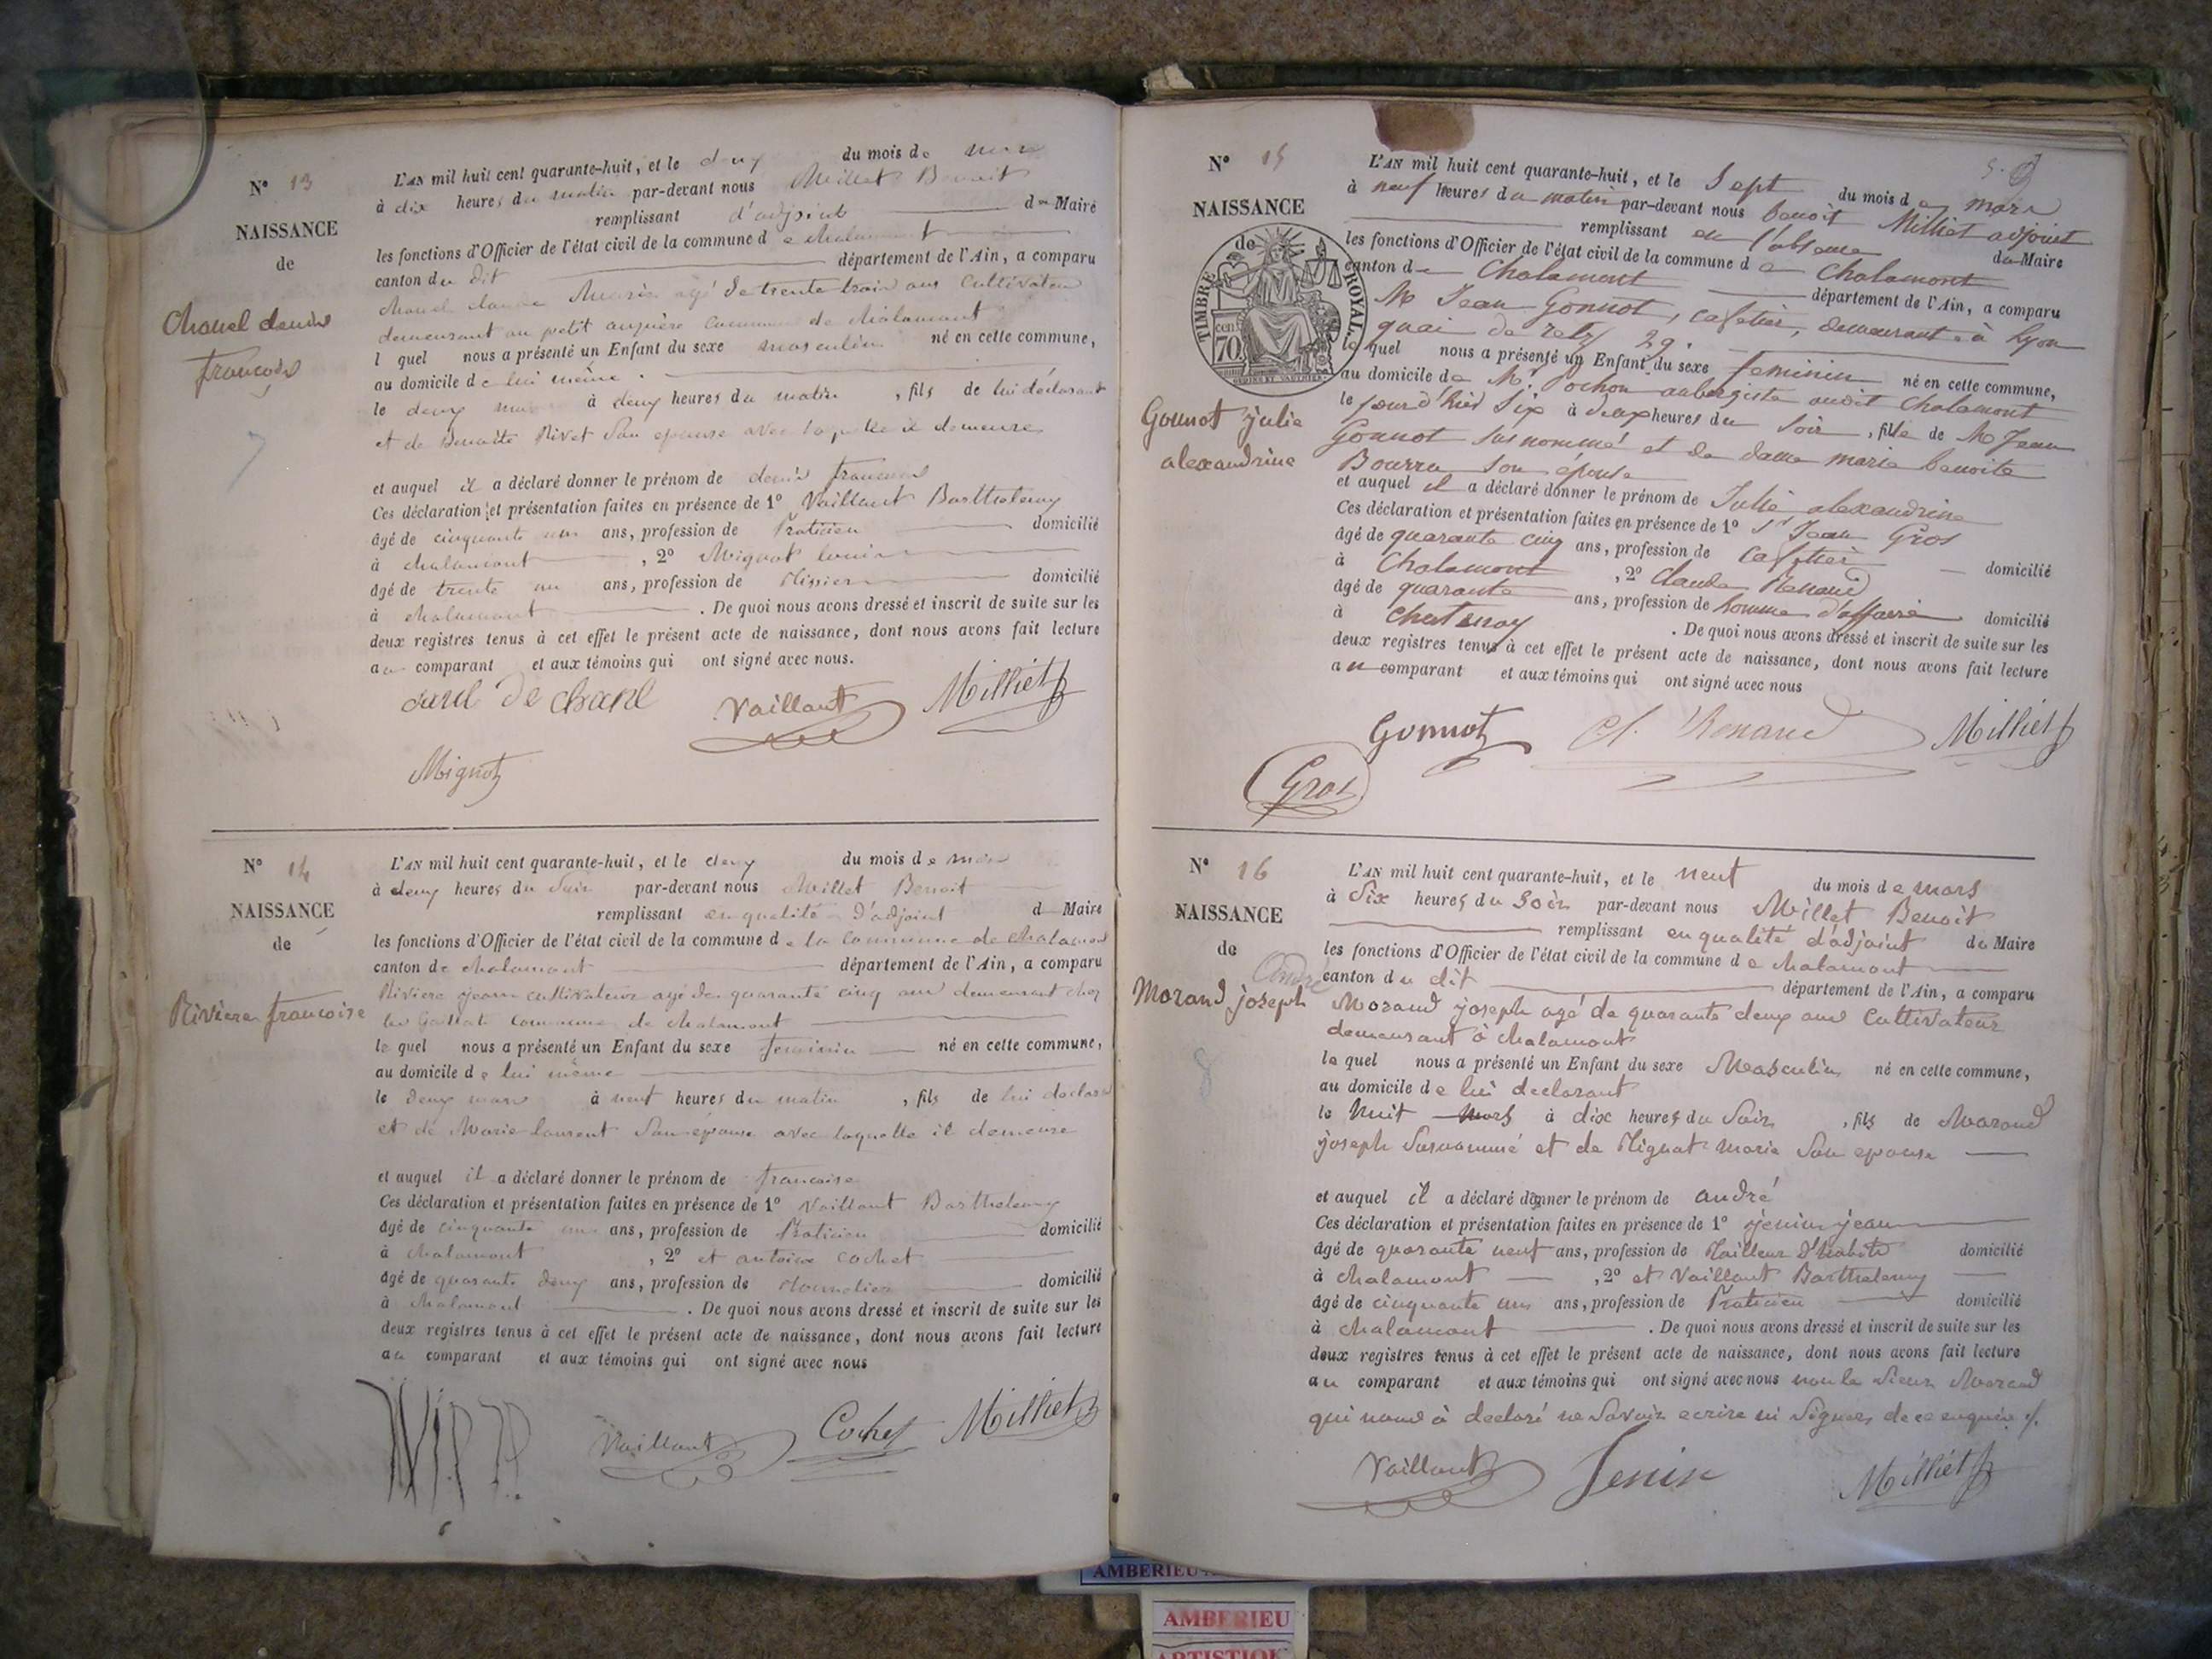 N° 13
NAISSANCE
de
Chanel denis
françois
7
L'AN mil huit cent quarante-huit, et le deux du mois de mars
à dix heures du matin par-devant nous Millet Benoit
remplissant d'adjoint du Maire
les fonctions d'Officier de l'état civil de la commune de chalamont
canton du dit département de l'Ain, a comparu
Chanel claude Marie agé de trente trois ans Cultivateur
demeurant au petit commune de chalamont
lequel nous a présenté un Enfant du sexe masculin né en cette commune,
au domicile de lui même.
le deux mars à deux heures du matin, fils de lui déclarant
et de Benoite Rivet Son epouse avec laquelle il demeure
et auquel il a déclaré donner le prénom de denis francois
Ces déclaration et présentation faites en présence de 1° Vaillant Barthelemy
âgé de cinquante un ans, profession de Praticien domicilié
à chalamont, 2° Mignot louis
âgé de trente un ans, profession de domicilié
à chalamont. De quoi nous avons dressé et inscrit de suite sur les
deux registres tenus à cet effet le présent acte de naissance, dont nous avons fait lecture
au comparant et aux témoins qui ont signé avec nous.
Vaillant Milliet
Mignot
N° 14
NAISSANCE
de
Riviere francoise
L'AN mil huit cent quarante-huit, et le deux du mois de mars
à deux heures du Soir par-devant nous Millet Benoit
remplissant en qualité d'adjoint du Maire
les fonctions d'Officier de l'état civil de la commune de la Commune de chalamont
canton de chalamont département de l'Ain, a comparu
Riviere jean cultivateur agé de quarante cinq ans demeurant chez
les Commune de chalamont
lequel nous a présenté un Enfant du sexe feminin né en cette commune,
au domicile de lui même
le deux mars à neuf heures du matin, fils de lui declarant
et de Marie laurent Son epouse avec laquelle il demeure
et auquel il a déclaré donner le prénom de francoise
Ces déclaration et présentation faites en présence de 1° Vaillant Barthelemy
âgé de cinquante un ans, profession de Praticien domicilié
à chalamont, 2° et antoine Cochet
âgé de quarante deux ans, profession de domicilié
à chalamont. De quoi nous avons dressé et inscrit de suite sur les
deux registres tenus à cet effet le présent acte de naissance, dont nous avons fait lecture
au comparant et aux témoins qui ont signé avec nous
Vaillant Cochet Milliet
N° 15
NAISSANCE
de
TIMBRE ROYAL
cen. 70
Gonnot julie
alexandrine
L'AN mil huit cent quarante-huit, et le Sept du mois de mars
à neuf heures du matin par-devant nous benoit Milliet adjoint
remplissant en l'absence du Maire
les fonctions d'Officier de l'état civil de la commune de Chalamont
canton de Chalamont département de l'Ain, a comparu
Mr Jean Gonnot, cafetier, demeurant à Lyon
quai de retz 29.
lequel nous a présenté un Enfant du sexe feminin né en cette commune,
au domicile de Mr. Pochon aubergiste audit Chalamont
le jour d'hier Six à heures du Soir, fille de Mr Jean
Gonnot susnommé et de dame marie benoite
Bourru son épouse
et auquel il a déclaré donner le prénom de Julie alexandrine
Ces déclaration et présentation faites en présence de 1° Sr Jean Gros
âgé de quarante cinq ans, profession de cafetier domicilié
à Chalamont, 2° Claude Renaud
âgé de quarante ans, profession de homme d'affaire domicilié
à Chatenay. De quoi nous avons dressé et inscrit de suite sur les
deux registres tenus à cet effet le présent acte de naissance, dont nous avons fait lecture
au comparant et aux témoins qui ont signé avec nous
Gonnot Cl. Renaud Milliet
Gros
N° 16
NAISSANCE
de
André
Morand joseph
8
L'AN mil huit cent quarante-huit, et le neuf du mois de mars
à Six heures du Soir par-devant nous Millet Benoit
remplissant en qualité d'adjoint du Maire
les fonctions d'Officier de l'état civil de la commune de chalamont
canton du dit département de l'Ain, a comparu
Morand joseph agé de quarante deux ans Cultivateur
demeurant à chalamont
lequel nous a présenté un Enfant du sexe Masculin né en cette commune,
au domicile de lui declarant
le huit mars à dix heures du Soir, fils de Morand
joseph Susnommé et de Mignat marie Son epouse
et auquel il a déclaré donner le prénom de andré
Ces déclaration et présentation faites en présence de 1° jenin jean
âgé de quarante neuf ans, profession de Tailleur d'habits domicilié
à chalamont, 2° et Vaillant Barthelemy
âgé de cinquante un ans, profession de Praticien domicilié
à chalamont. De quoi nous avons dressé et inscrit de suite sur les
deux registres tenus à cet effet le présent acte de naissance, dont nous avons fait lecture
au comparant et aux témoins qui ont signé avec nous non le Sieur Morand
qui nous à declaré ne Savoir ecrire ni Signer de ce enquis
Vaillant Jenin Milliet
AMBERIEU
AMBERIEU